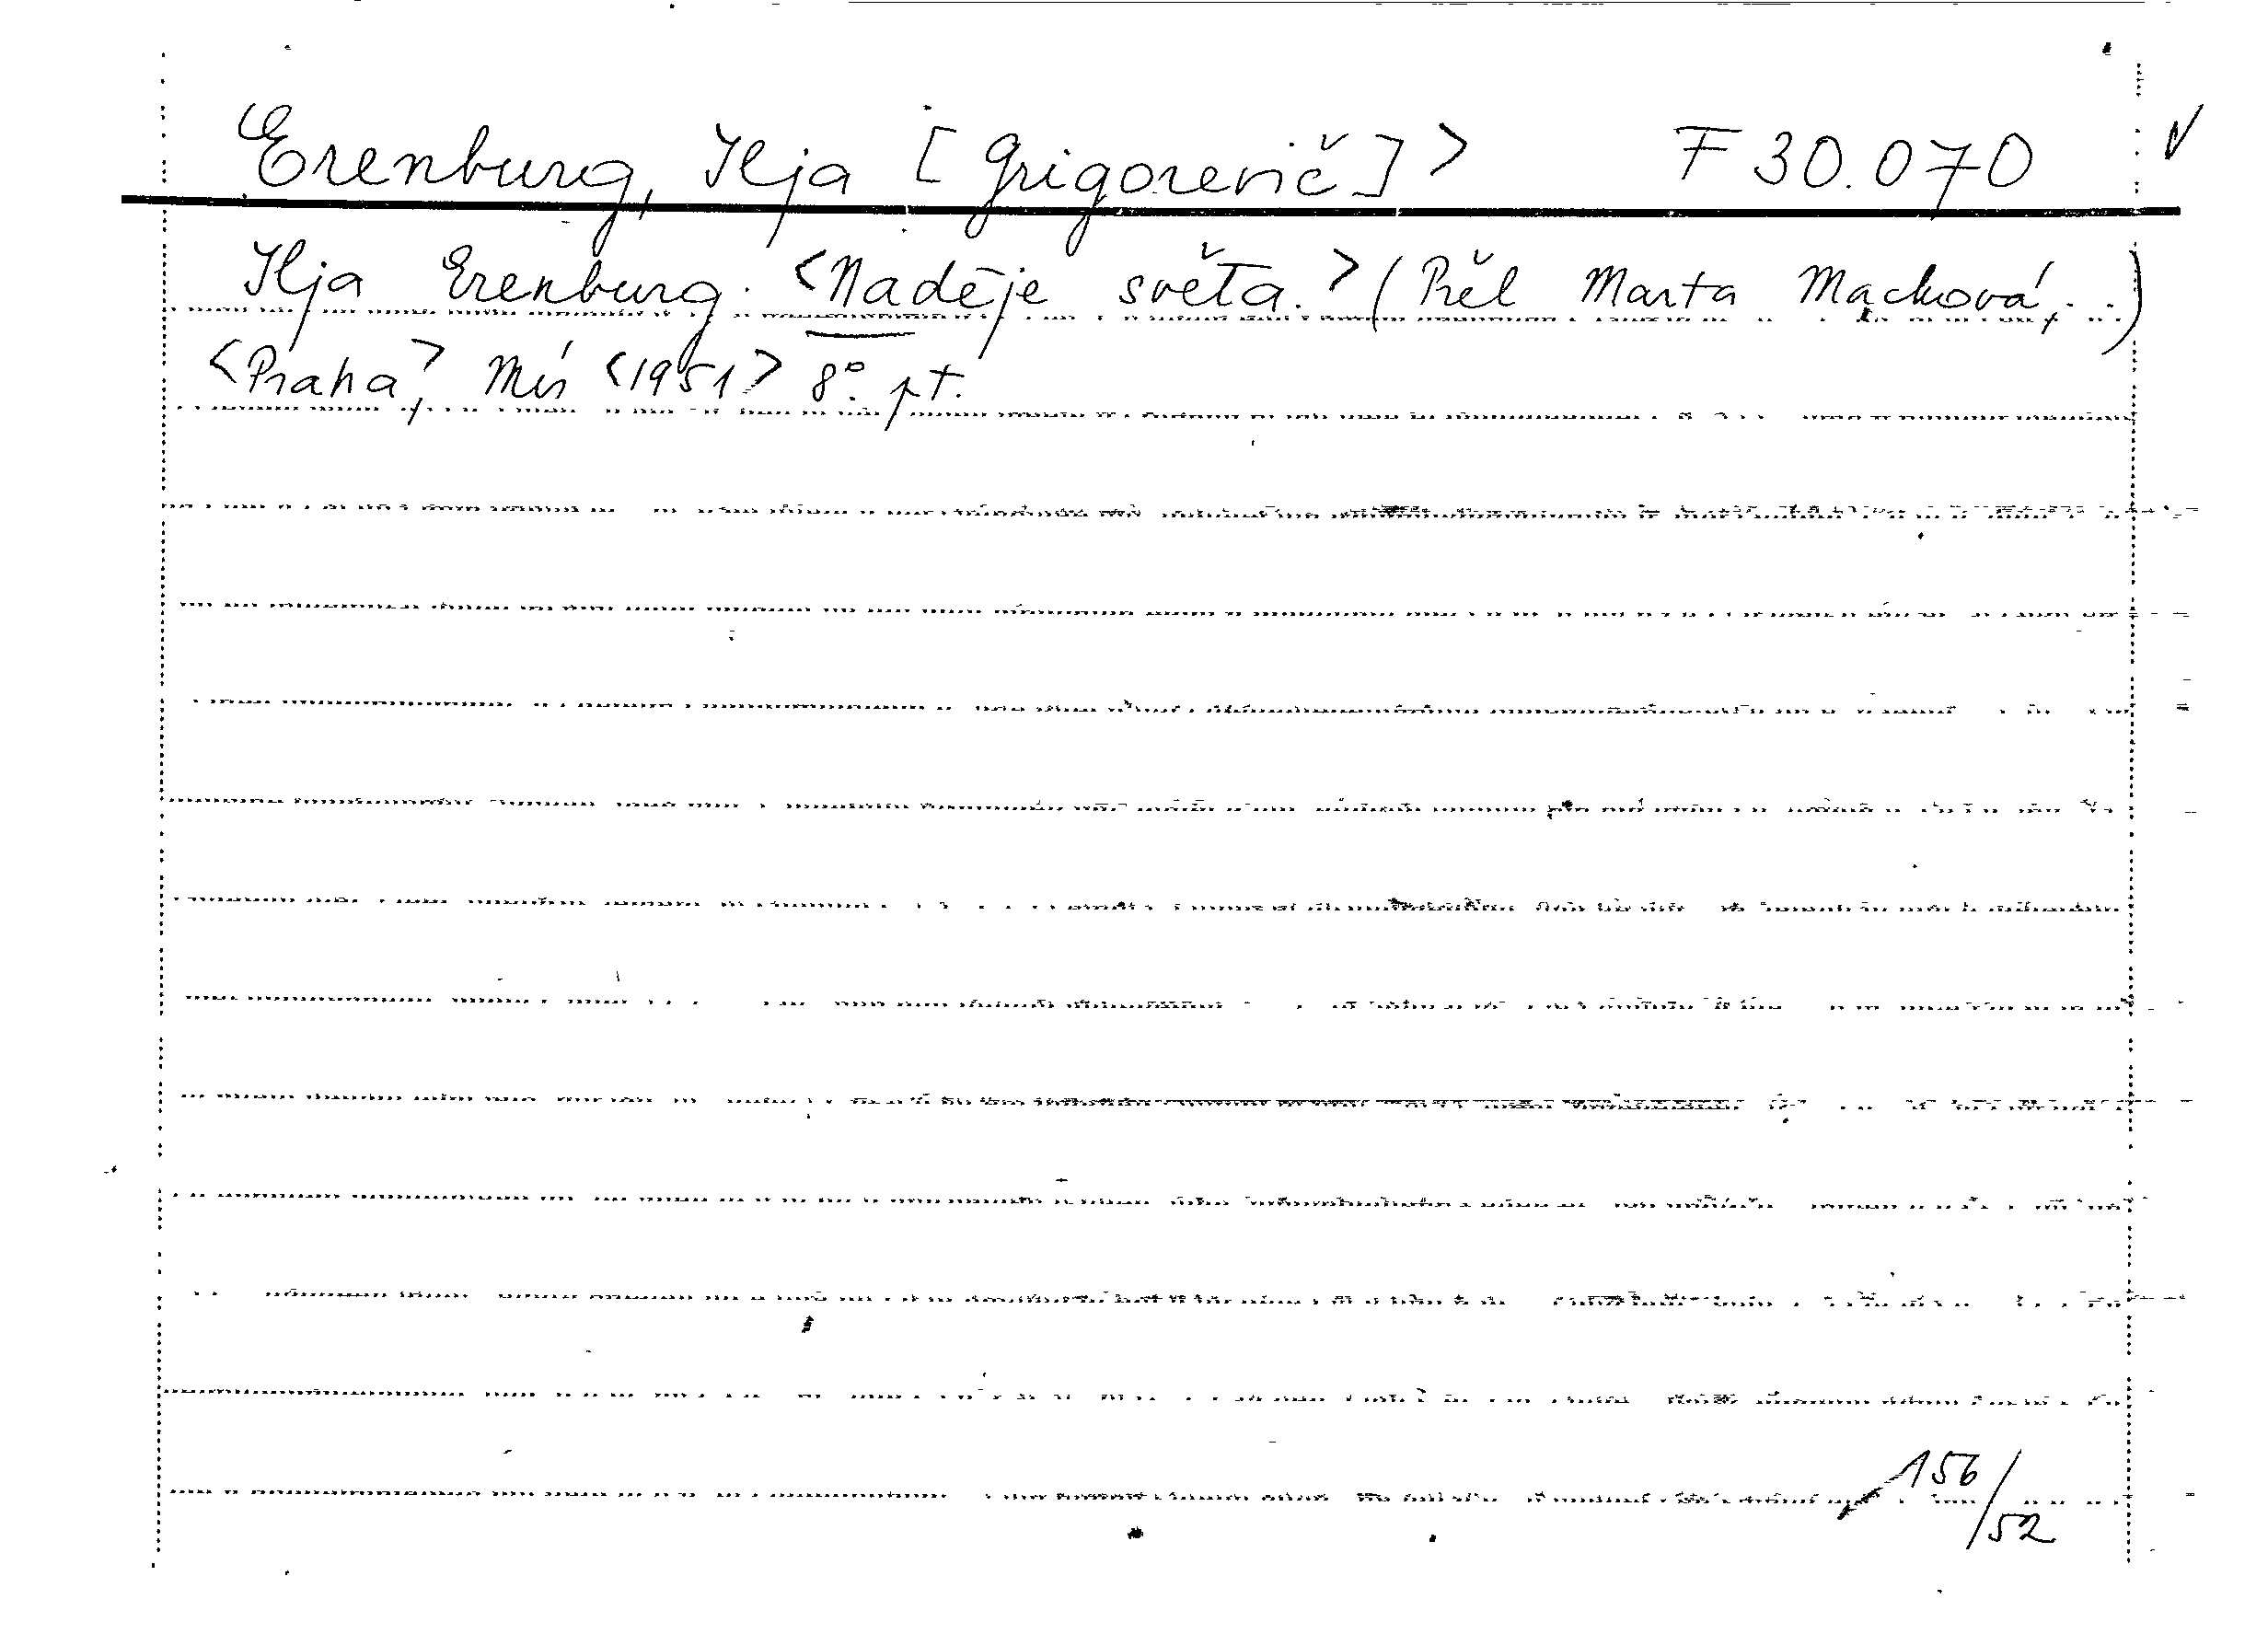 Erenburg, Ilja [Grigorevič] > F 30.070 √
Ilja Erenburg. <Naděje světa.> (Přel Marta Macková, ..)
<Praha,> Mír <1951> 8°. pt.
156/52